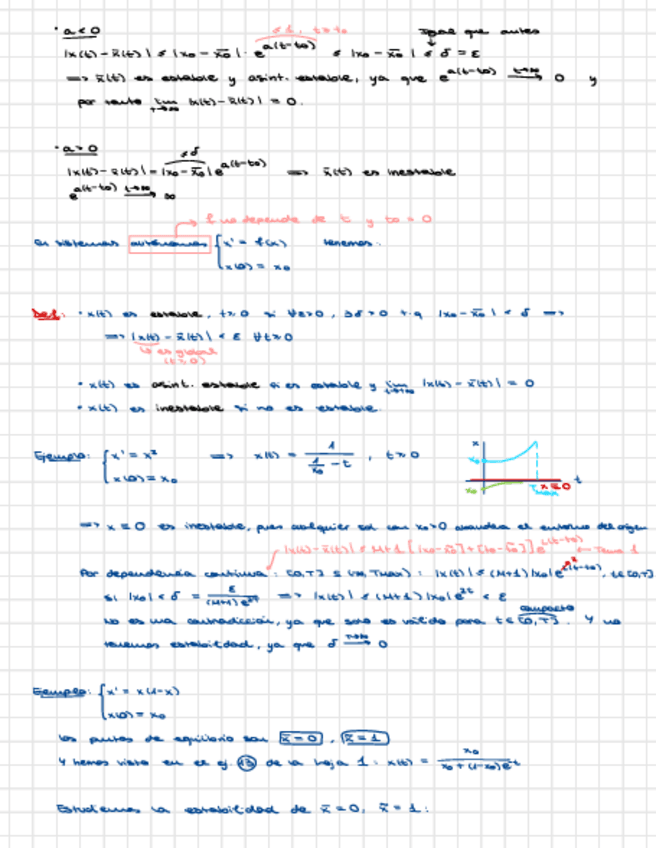 · a < 0
≤ 1, t > t₀    igual que antes
|x(t) - x̄(t)| ≤ |x₀ - x̄₀| · e^{a(t-t₀)} ≤ |x₀ - x̄₀| ≤ δ = ε
=> x̄(t) es estable y asint. estable, ya que e^{a(t-t₀)} →^{t→∞} 0 y
por tanto lim_{t→∞} |x(t) - x̄(t)| = 0.
· a > 0
≤ δ
|x(t) - x̄(t)| = |x₀ - x̄₀| e^{a(t-t₀)} => x̄(t) es inestable
e^{a(t-t₀)} →^{t→∞} ∞
f no depende de t y t₀ = 0
sistemas autónomos { x' = f(x) tenemos:
x(0) = x₀
Def: · x(t) es estable, t>0 si ∀ε>0, ∃δ>0 t.q |x₀ - x̄₀| < δ =>
=> |x(t) - x̄(t)| < ε ∀t>0
es global
(t>0)
· x(t) es asint. estable si es estable y lim_{t→∞} |x(t) - x̄(t)| = 0
· x(t) es inestable si no es estable.
Ejemplo: { x' = x² => x(t) = 1 / (1/x₀ - t), t>0
x(0) = x₀
x x₀ x₀ Tmax x≡0 t
=> x ≡ 0 es inestable, pues cualquier sol con x₀>0 abandona el entorno del origen
|x(t) - x̄(t)| ≤ M+1 [|x₀ - x̄₀| + |t₀ - t̄₀|] e^{L(t-t₀)} ← Tema 1
Por dependencia continua: [0,T] ⊆ (-∞, Tmax): |x(t)| ≤ (M+1)|x₀| e^{L(t-t₀)}, t∈[0,T]
si |x₀| < δ = ε / ((M+1) e^{LT}) => |x(t)| ≤ (M+1)|x₀| e^{LT} < ε
compacto
No es una contradicción, ya que solo es válido para t∈[0,T]. Y no
tenemos estabilidad, ya que δ →^{T→∞} 0
Ejemplo: { x' = x(1-x)
x(0) = x₀
los puntos de equilibrio son x̄ = 0, x̄ = 1
Y hemos visto en el ej. de la hoja 1: x(t) = x₀ / (x₀ + (1-x₀)e^{-t})
Estudiemos la estabilidad de x̄ = 0, x̄ = 1: